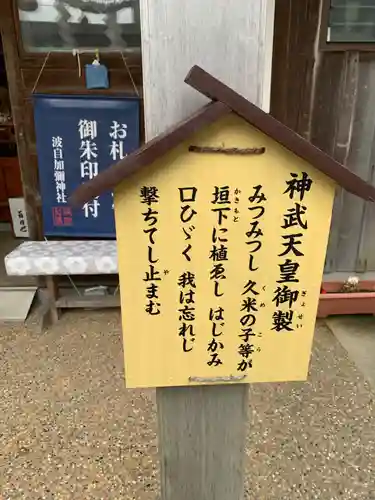 神武天皇御製
ぎょせい
みつみつし 久米の子等が
くめ こら
垣下に植ゑし はじかみ
かきもと
口ひゞく 我は忘れじ
撃ちてし止まむ
や
お札
御朱印 付
波自加彌神社